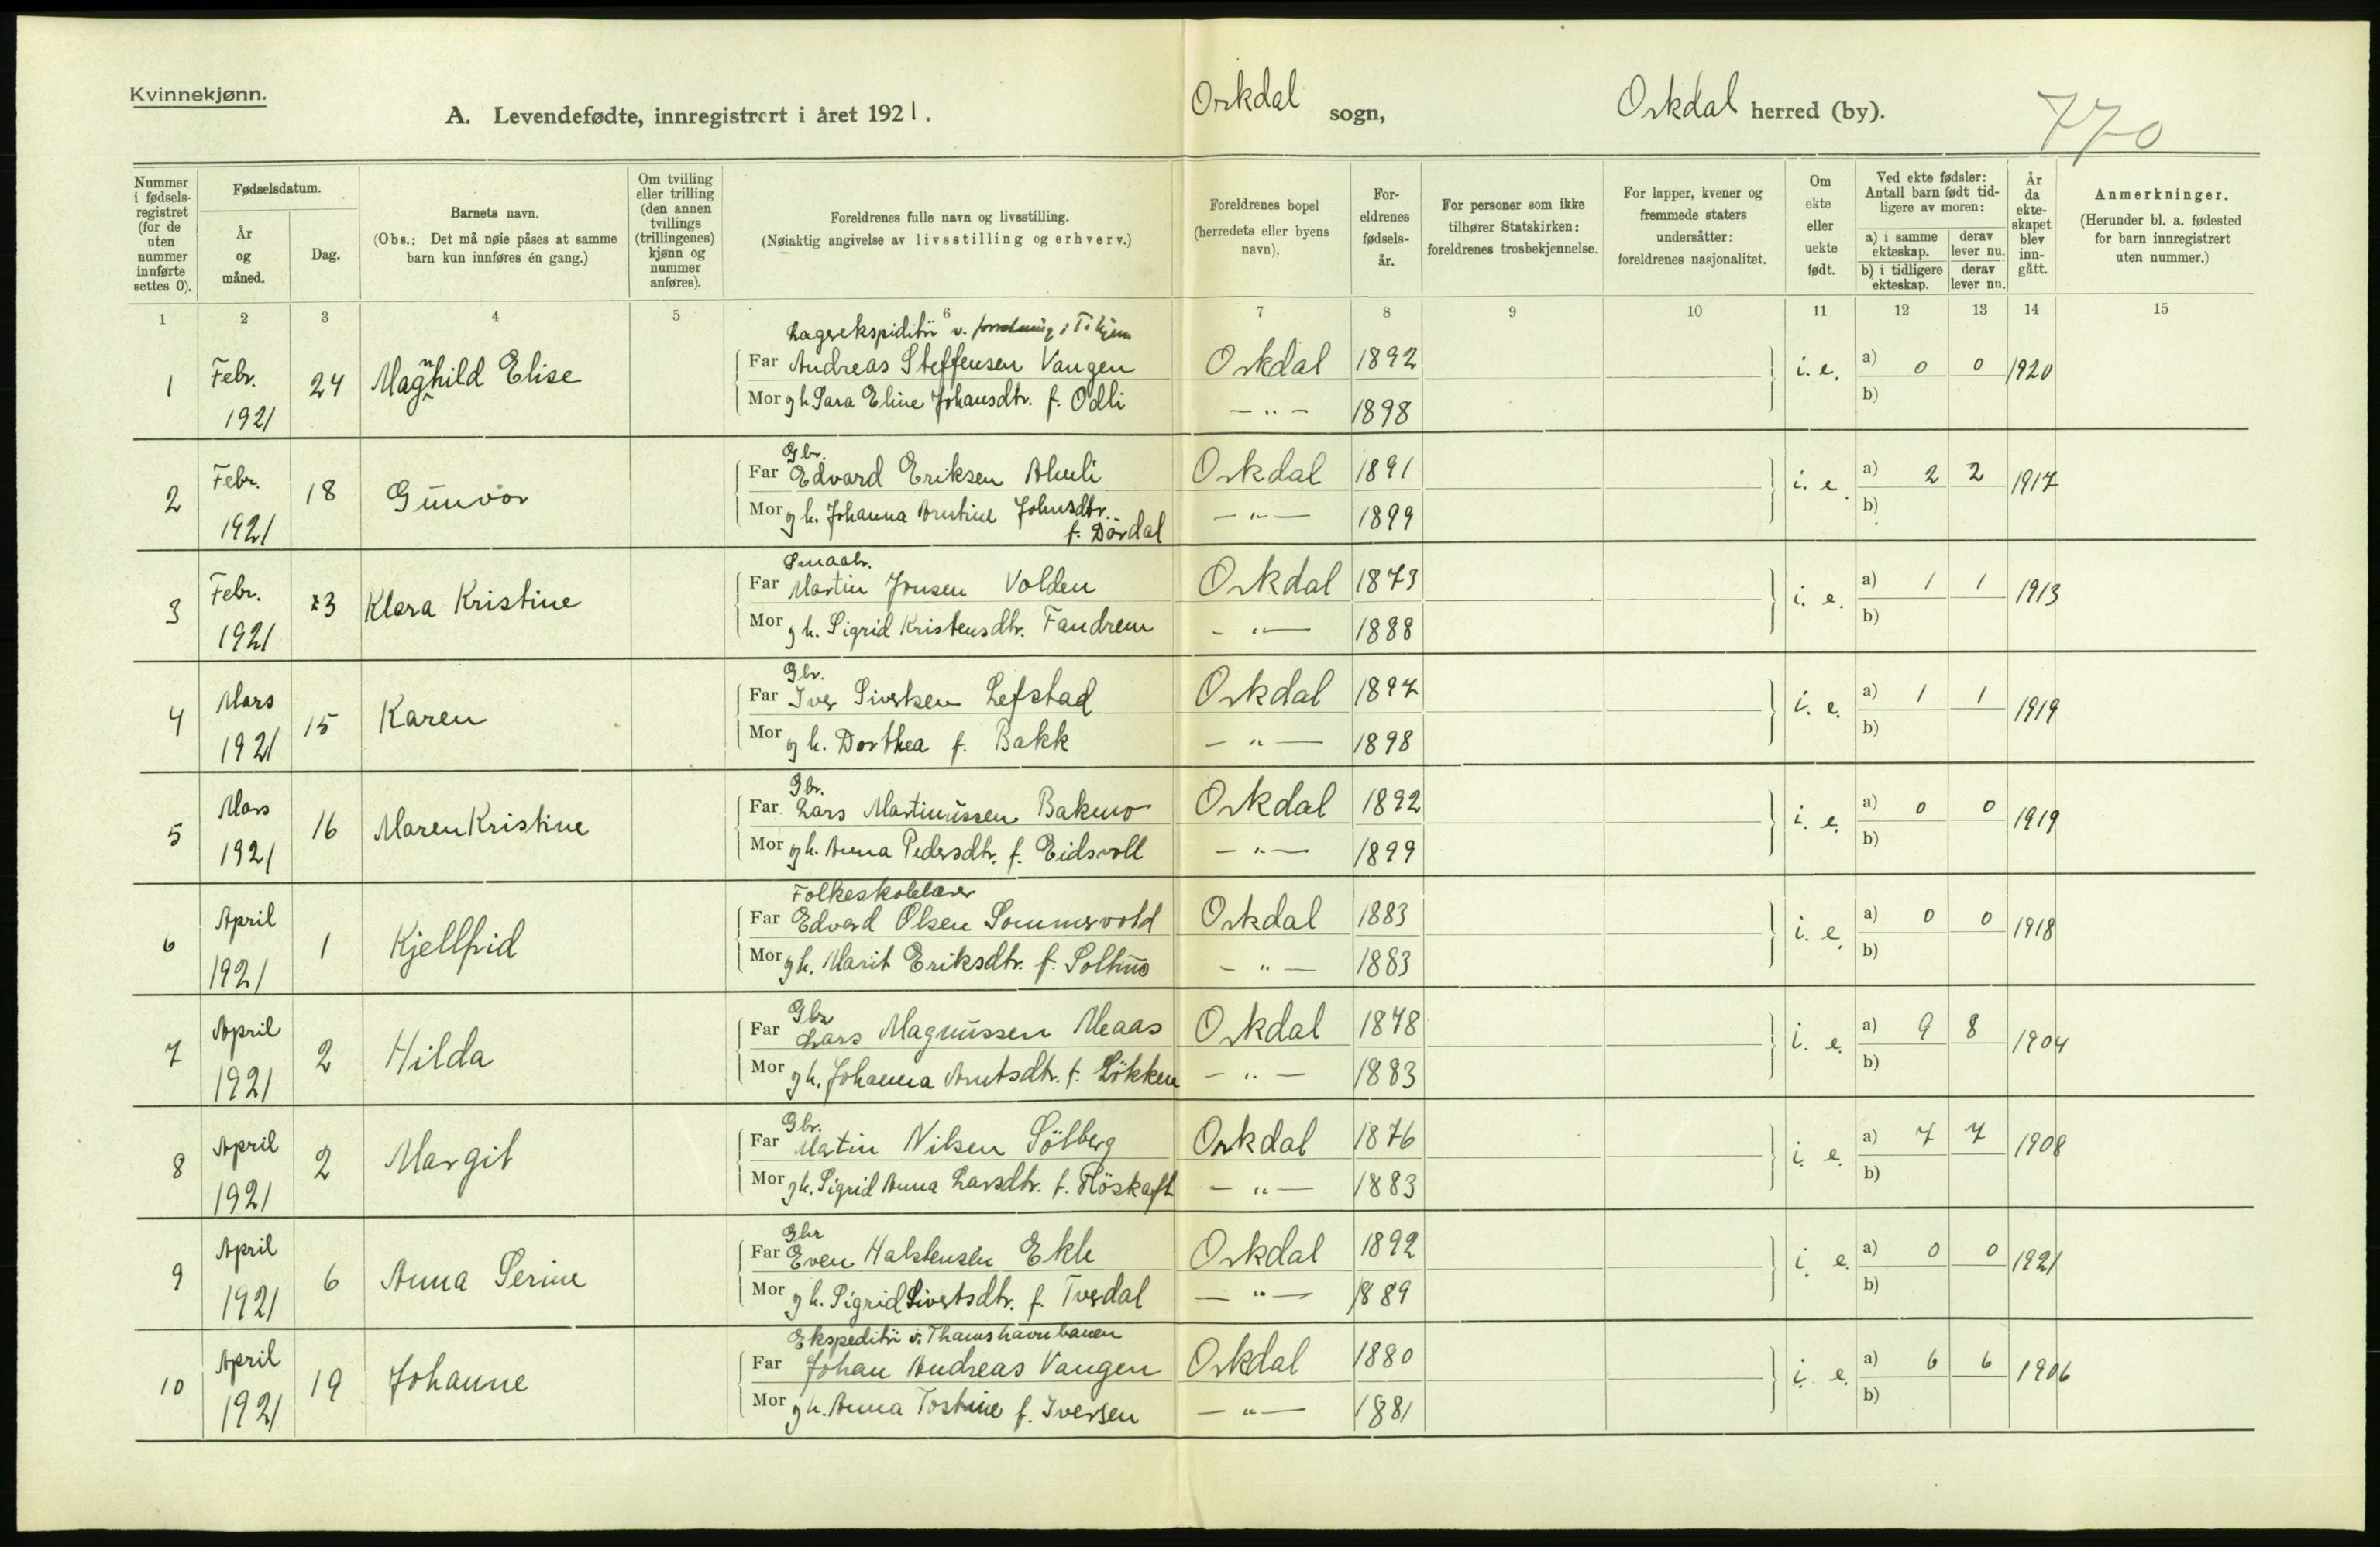 Kvinnekjønn.
A. Levendefødte, innregistrert i året 1921. Orkdal sogn, Orkdal herred (by). 770
Nummer i fødsels-registret (for de uten nummer innførte settes 0).
Fødselsdatum.
År og måned.
Dag.
Barnets navn.
(Obs.: Det må nøie påses at samme barn kun innføres én gang.)
Om tvilling eller trilling (den annen tvillings (trillingenes) kjønn og nummer anføres).
Foreldrenes fulle navn og livsstilling.
(Nøiaktig angivelse av livsstilling og erhverv.)
Foreldrenes bopel (herredets eller byens navn).
For-eldrenes fødsels-år.
For personer som ikke tilhører Statskirken: foreldrenes trosbekjennelse.
For lapper, kvener og fremmede staters undersåtter: foreldrenes nasjonalitet.
Om ekte eller uekte født.
Ved ekte fødsler: Antall barn født tid-ligere av moren:
a) i samme ekteskap. derav lever nu.
b) i tidligere ekteskap. derav lever nu.
År da ekte-skapet blev inn-gått.
Anmerkninger.
(Herunder bl. a. fødested for barn innregistrert uten nummer.)
1 2 3 4 5 6 7 8 9 10 11 12 13 14 15
Lagerekspeditör v. forretning i
1 Febr. 1921 24 Magnhild Elise Far Andreas Steffensen Vangen Orkdal 1892 i. e. a) 0 0 1920
Mor gh. Sara Eline Johansdtr. f. Odli — " — 1898 b)
Gbr.
2 Febr. 1921 18 Gunvor Far Edvard Eriksen Orkdal 1891 i. e. a) 2 2 1917
Mor gh. Johanna Arntine Johnsdtr. — " — 1899 b)
f. Dördal
Smaabr.
3 Febr. 1921 23 Klara Kristine Far Martin Jonsen Volden Orkdal 1873 i. e. a) 1 1 1913
Mor gh. Sigrid Kristensdtr. Fandrem — " — 1888 b)
Gbr.
4 Mars 1921 15 Karen Far Iver Sivertsen Lefstad Orkdal 1897 i. e. a) 1 1 1919
Mor gh. Dorthea f. Bakk — " — 1898 b)
Gbr.
5 Mars 1921 16 Maren Kristine Far Lars Martinussen Bakmo Orkdal 1892 i. e. a) 0 0 1919
Mor gh. Anna Pedersdtr. f. Eidsvoll — " — 1899 b)
Folkeskolelærer
6 April 1921 1 Kjellfrid Far Edvard Olsen Sommervold Orkdal 1883 i. e. a) 0 0 1918
Mor gh. Marit Eriksdtr. f. Solhus — " — 1883 b)
Gbr
7 April 1921 2 Hilda Far Lars Magnussen Meaas Orkdal 1878 i. e. a) 9 8 1904
Mor gh. Johanna Arntsdtr. f. Lökken — " — 1883 b)
Gbr.
8 April 1921 2 Margit Far Martin Nilsen Sölberg Orkdal 1876 i. e. a) 7 7 1908
Mor gh. Sigrid Anna Larsdtr. f. Höskaft — " — 1883 b)
Gbr
9 April 1921 6 Anna Serine Far Even Halstensen Ekle Orkdal 1892 i. e. a) 0 0 1921
Mor gh. Sigrid Sivertsdtr. f. Tverdal — " — 1889 b)
Ekspeditör v. Thamshavnbanen
10 April 1921 19 Johanne Far Johan Andreas Vangen Orkdal 1880 i. e. a) 6 6 1906
Mor gh. Anna Tostine f. Iversen — " — 1881 b)